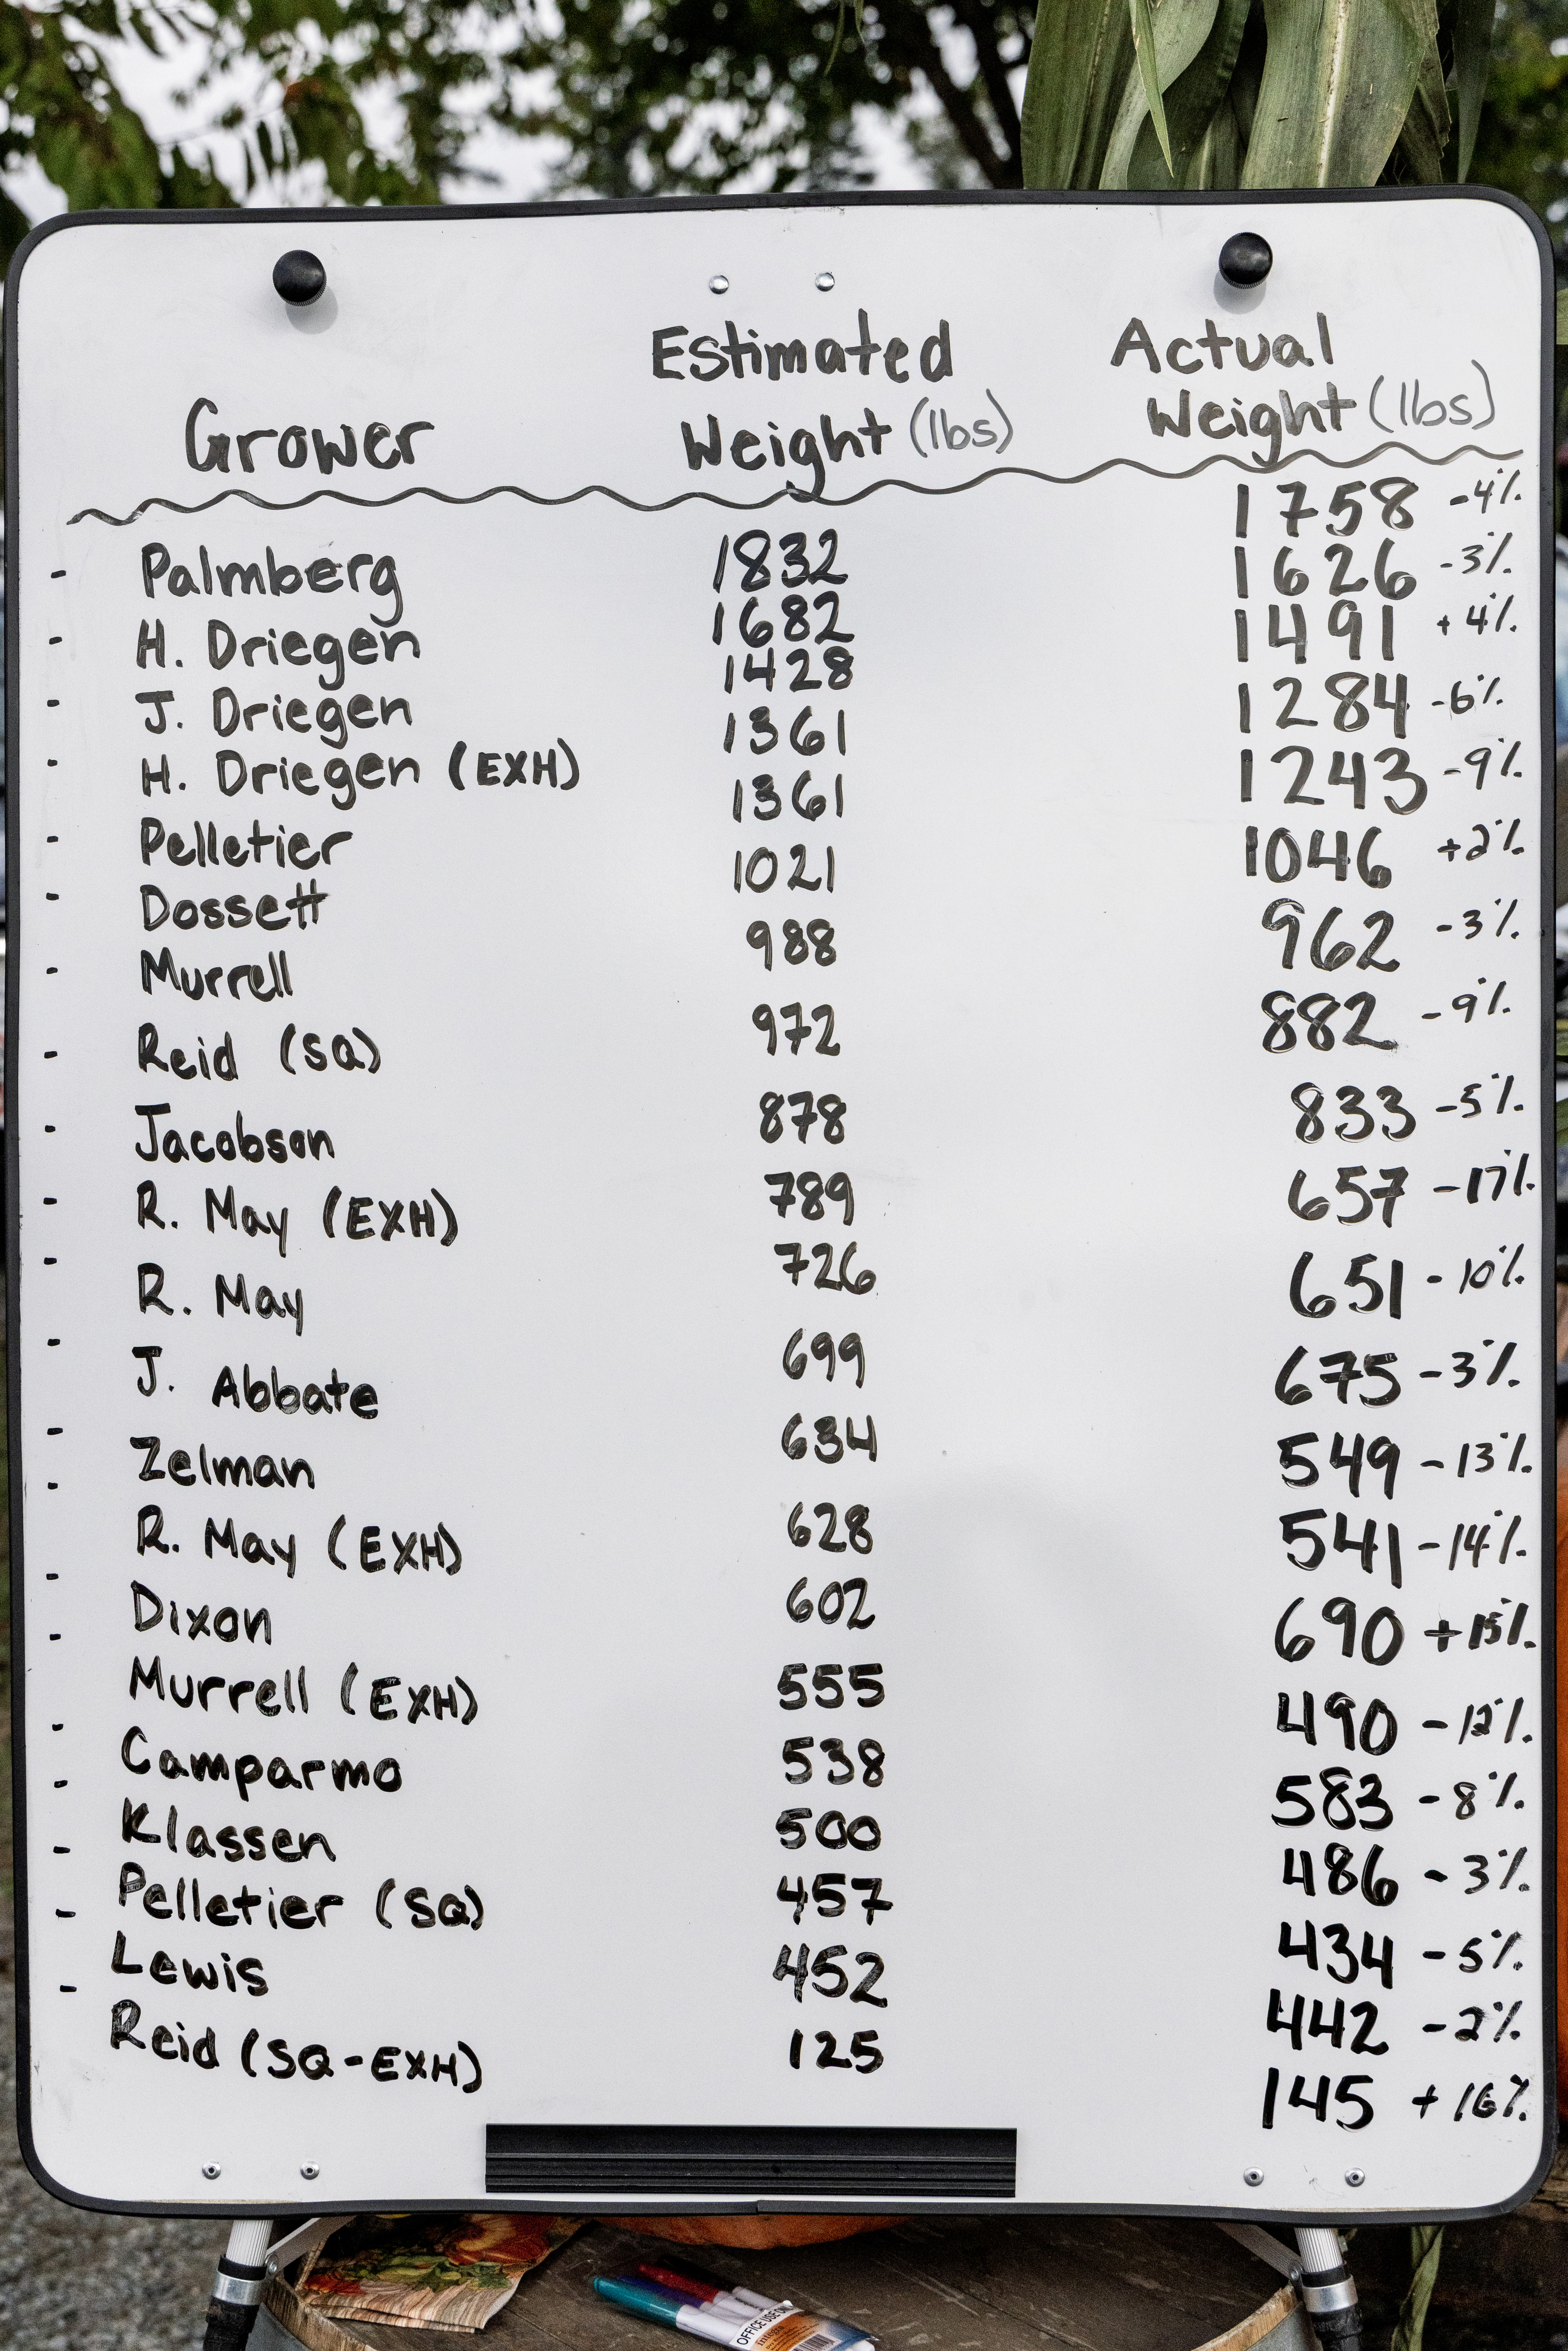 Estimated Actual
Grower Weight (lbs) Weight (lbs)
- Palmberg 1832 1758 -4%
- H. Driegen 1682 1626 -3%
- J. Driegen 1428 1491 +4%
- H. Driegen (EXH) 1361 1284 -6%
- Pelletier 1361 1243 -9%
- Dossett 1021 1046 +2%
- Murrell 988 962 -3%
- Reid (SQ) 972 882 -9%
- Jacobson 878 833 -5%
- R. May (EXH) 789 657 -17%
- R. May 726 651 -10%
- J. Abbate 699 675 -3%
- Zelman 634 549 -13%
- R. May (EXH) 628 541 -14%
- Dixon 602 690 +15%
- Murrell (EXH) 555 490 -12%
- Camparmo 538 583 -8%
- Klassen 500 486 -3%
- Pelletier (SQ) 457 434 -5%
- Lewis 452 442 -2%
- Reid (SQ-EXH) 125 145 +16%
OFFICE USE ONLY